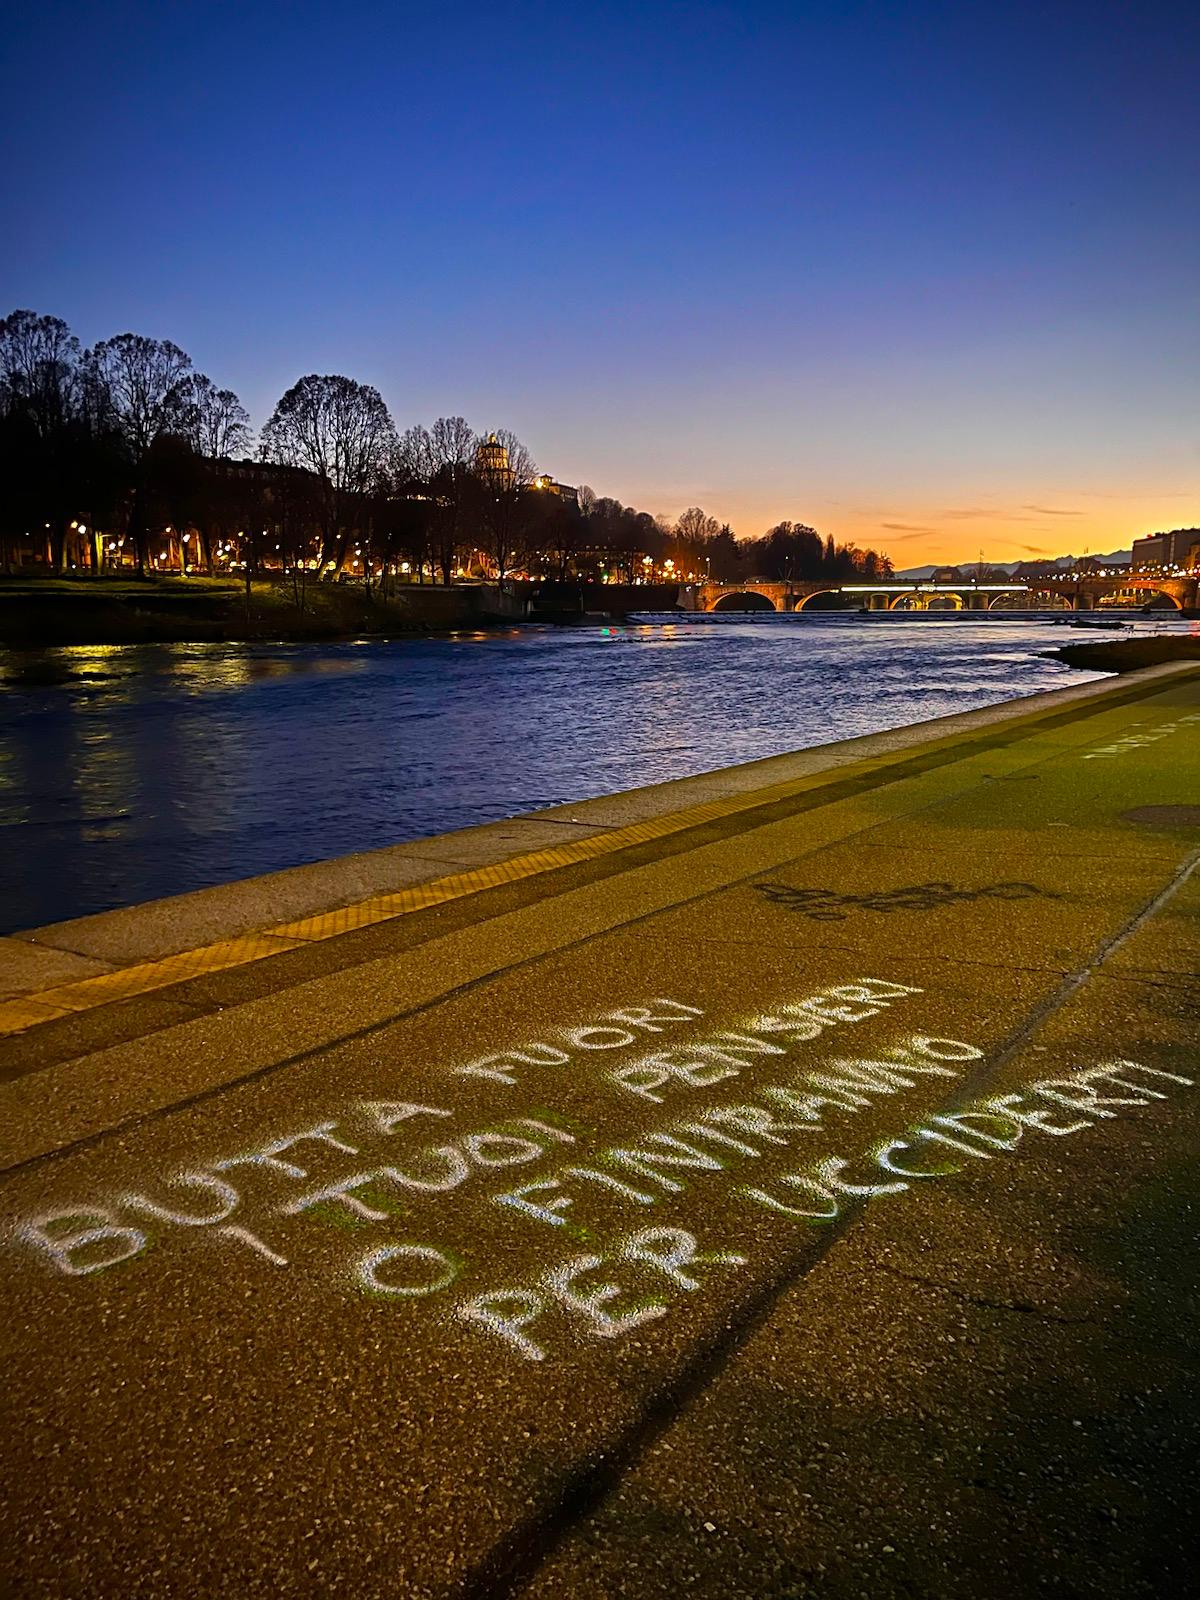 BUTTA FUORI
I TUOI PENSIERI
O FINIRANNO
PER UCCIDERTI